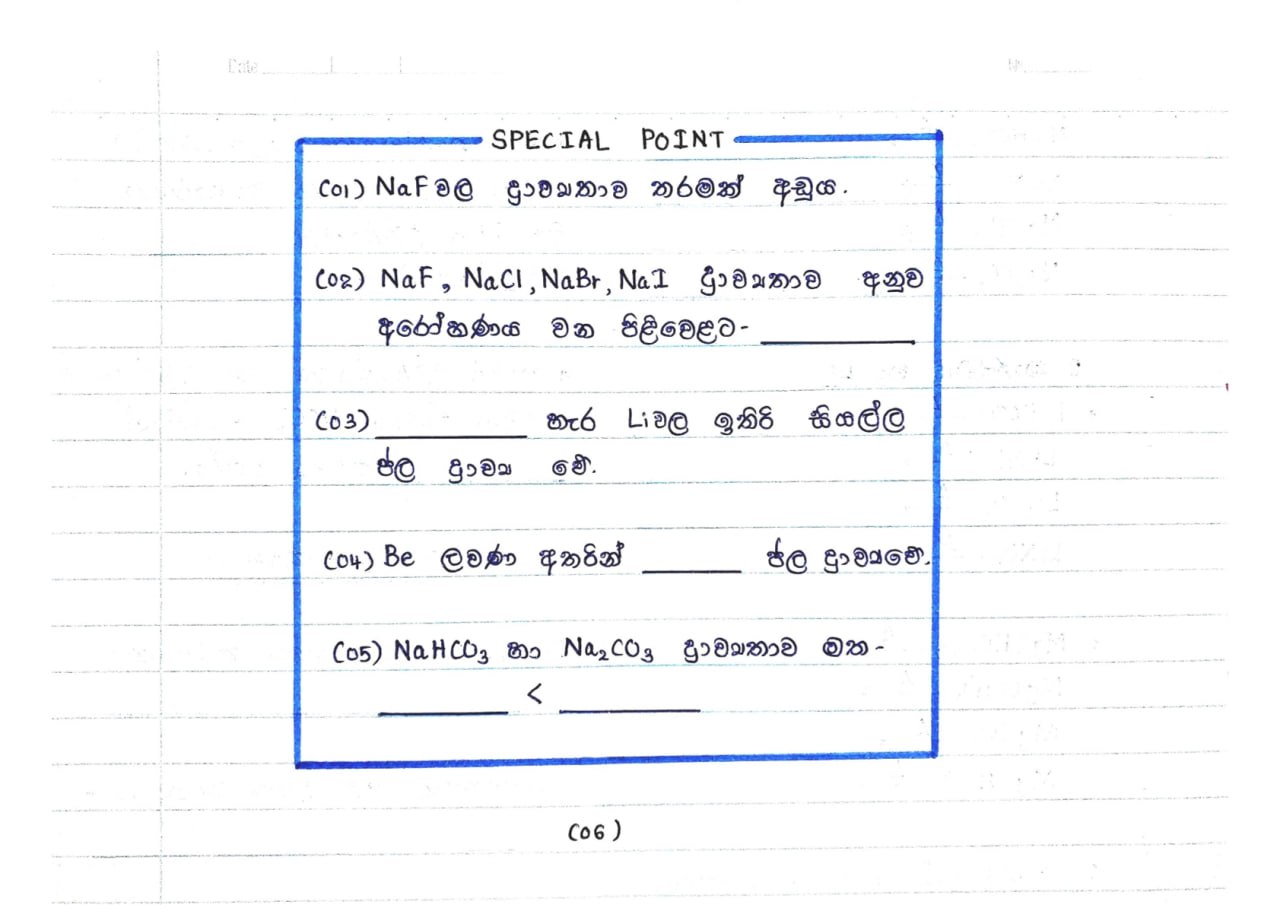 Date
SPECIAL POINT
(01) NaF වල ද්‍රාව්‍යතාව තරමක් අඩුය.
(02) NaF, NaCl, NaBr, NaI ද්‍රාව්‍යතාව අනුව
අරෝහණය වන පිළිවෙළට- ____________
(03) ____________ හැර Li වල ඉතිරි සියල්ල
ජල ද්‍රාව්‍ය වේ.
(04) Be ලවණ අතරින් ________ ජල ද්‍රාව්‍යවේ.
(05) NaHCO₃ හා Na₂CO₃ ද්‍රාව්‍යතාව මත-
__________ < __________
(06)